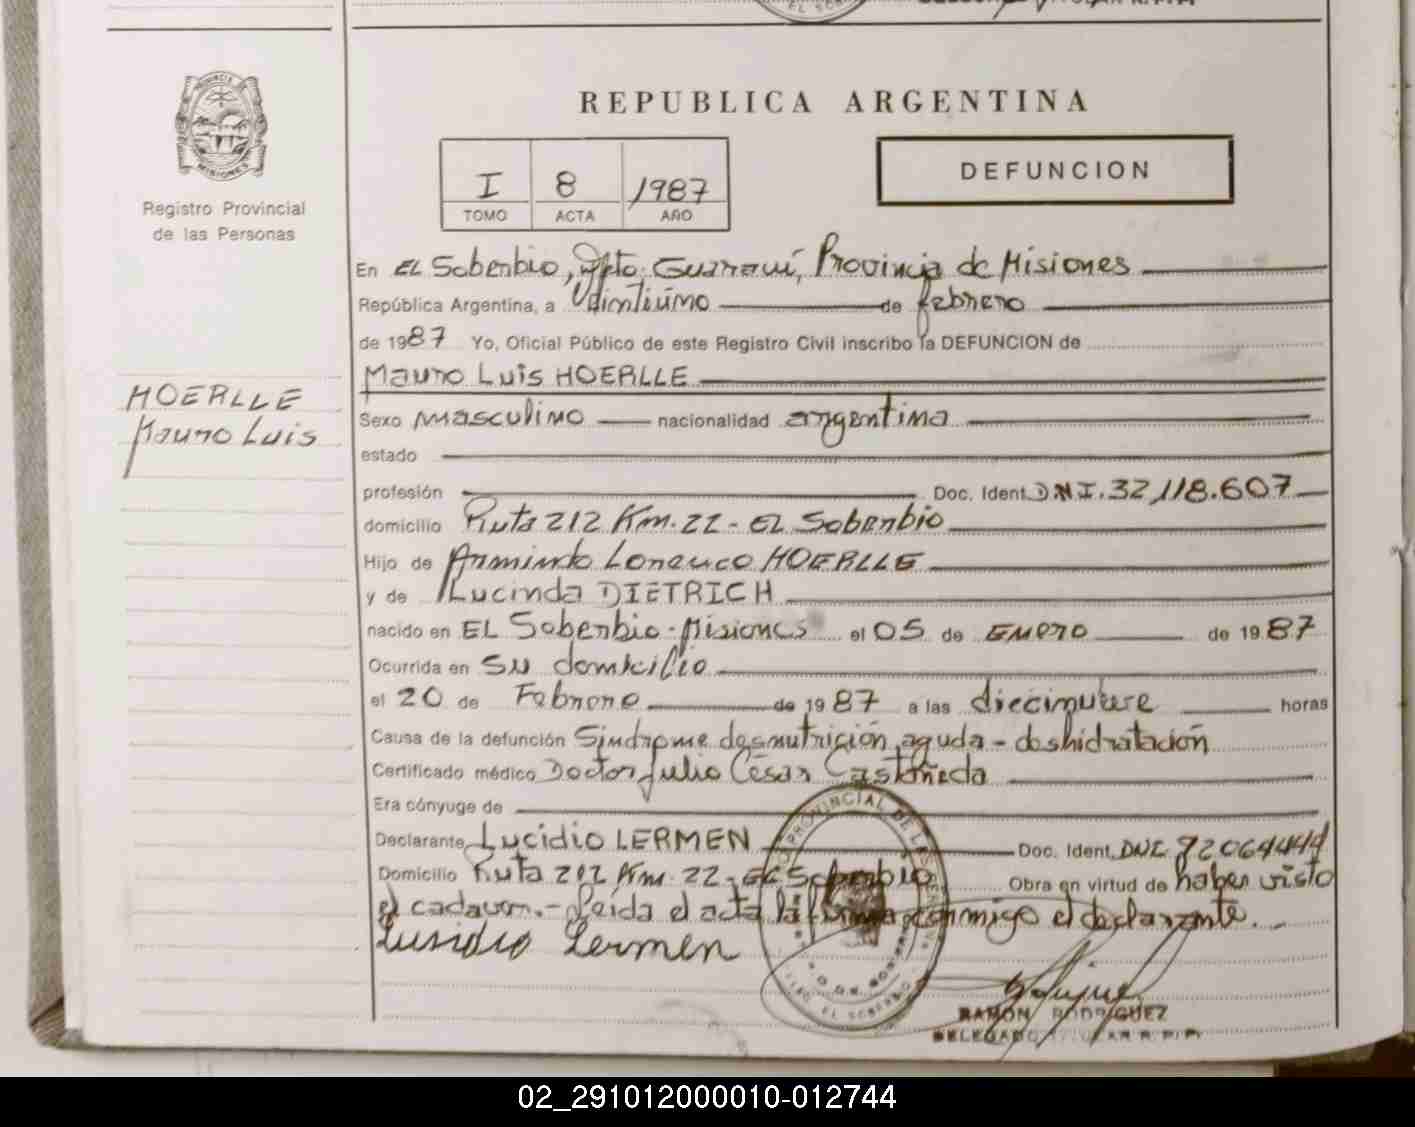 REPUBLICA ARGENTINA
I 8 1987
TOMO ACTA AÑO
DEFUNCION
MISIONES
Registro Provincial
de las Personas
En EL Soberbio, Dpto. Guaraní, Provincia de Misiones
República Argentina, a Veintiuno de febrero
de 1987 Yo, Oficial Público de este Registro Civil inscribo la DEFUNCION de
Mauro Luis HOERLLE
HOERLLE
Mauro Luis
Sexo masculino nacionalidad argentina
estado
profesión Doc. Ident. D.N.I. 32.118.607
domicilio Ruta 212 Km. 22 - EL Soberbio
Hijo de Armindo Lorenco HOERLLE
y de Lucinda DIETRICH
nacido en EL Soberbio - Misiones el 05 de Enero de 1987
Ocurrida en su domicilio
el 20 de Febrero de 1987 a las diecinueve horas
Causa de la defunción Sindrome desnutrición aguda - deshidratación
Certificado médico Doctor Julio César Castañeda
Era cónyuge de
Declarante Lucidio LERMEN Doc. Ident. DNI 92064444
Domicilio Ruta 212 Km. 22 - EL Soberbio Obra en virtud de haber visto
el cadaver. - Leida el acta la firma conmigo el declarante.
Lusidio Lermen
RAMON RODRIGUEZ
DELEGADO TITULAR R.P.P.
02_291012000010-012744